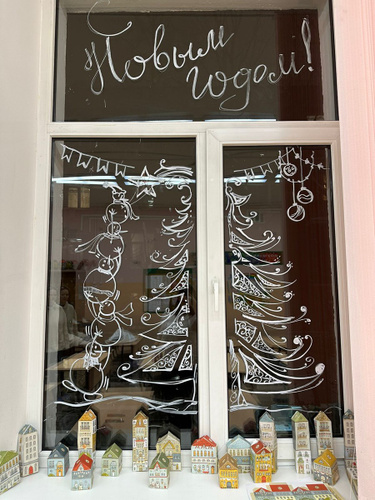 Новым
годом!